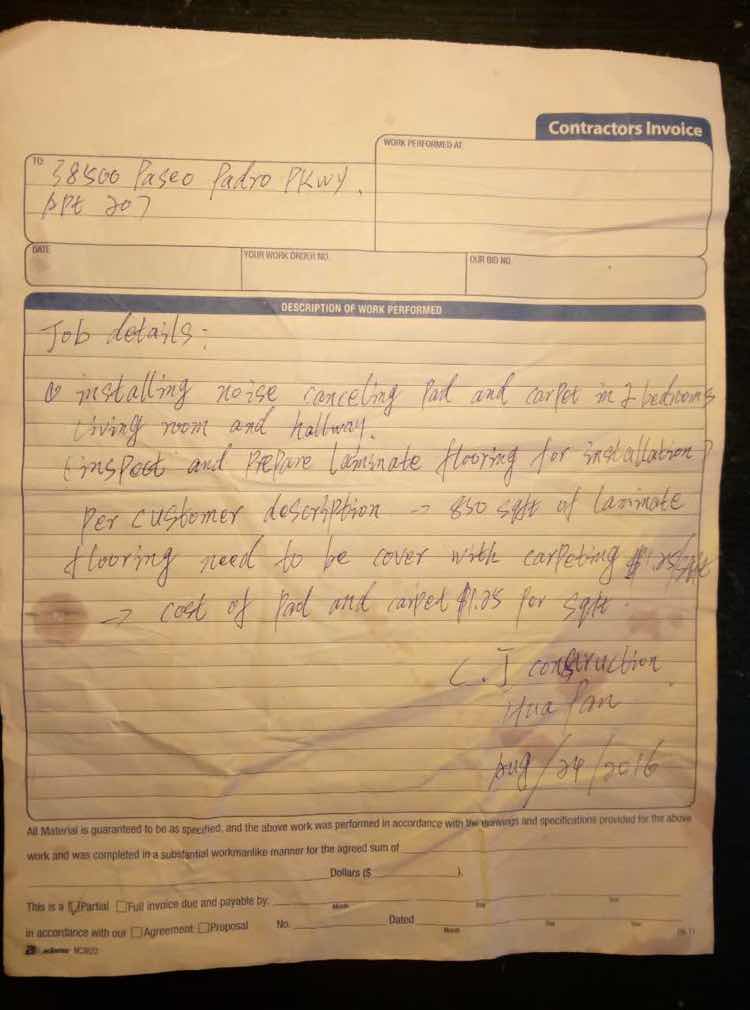 Contractors Invoice
TO
38500 Paseo Padro PKWY.
APt 207
WORK PERFORMED AT
DATE
YOUR WORK ORDER NO.
OUR BID NO.
DESCRIPTION OF WORK PERFORMED
Job details:
installing noise canceling Pad and carpet in 2 bedrooms
Living room and hallway.
(inspect and PrePare Laminate flooring for installation)
Per customer description → 850 sqft of laminate
flooring need to be cover with carpeting $1.25/sqft
→ cost of Pad and carped $1.25 Per sqft.
C.J construction
Hua Pan
Aug/24/2016
All Material is guaranteed to be as specified, and the above work was performed in accordance with the drawings and specifications provided for the above
work and was completed in a substantial workmanlike manner for the agreed sum of
Dollars ($ ).
This is a ☑ Partial ☐ Full invoice due and payable by:
Month Day Year
in accordance with our ☐ Agreement ☐ Proposal No. Dated
Month Day Year
adams NC3822